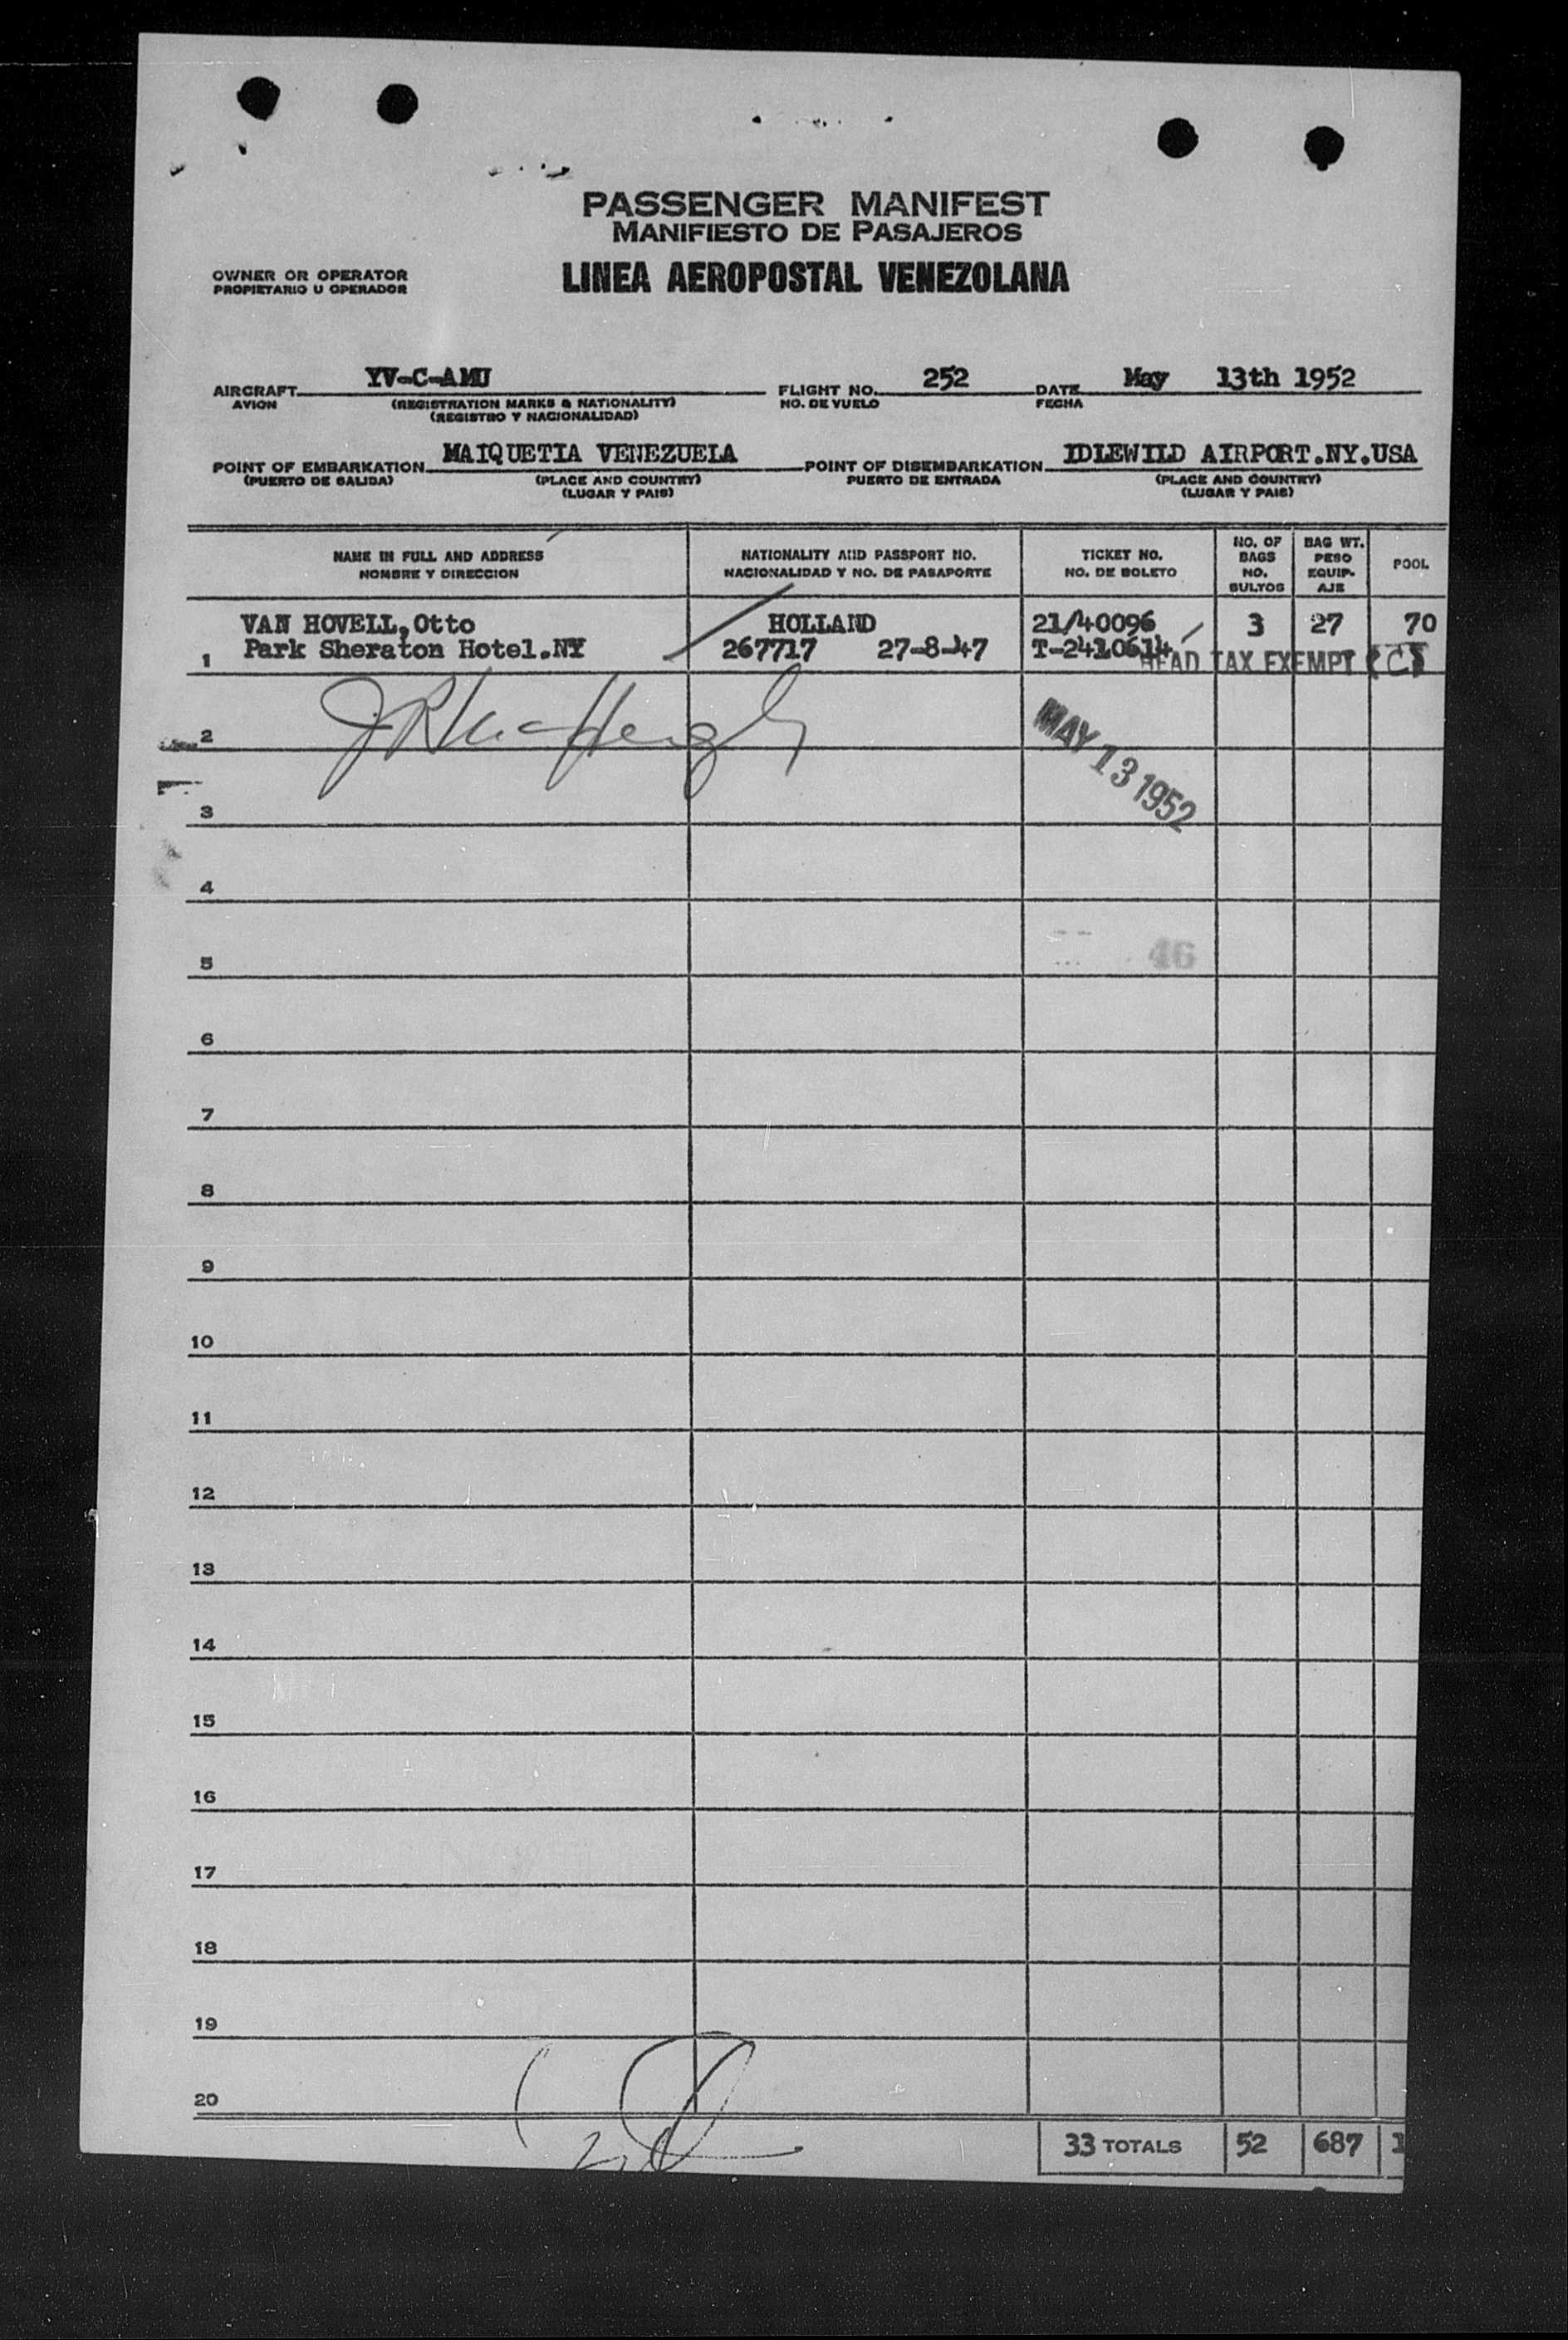 PASSENGER MANIFEST
MANIFIESTO DE PASAJEROS
OWNER OR OPERATOR
PROPIETARIO U OPERADOR
LINEA AEROPOSTAL VENEZOLANA
AIRCRAFT YV-C-AMU FLIGHT NO. 252 DATE May 13th 1952
AVION (REGISTRATION MARKS & NATIONALITY) NO. DE VUELO FECHA
(REGISTRO Y NACIONALIDAD)
POINT OF EMBARKATION MAIQUETIA VENEZUELA POINT OF DISEMBARKATION IDLEWILD AIRPORT.NY.USA
(PUERTO DE SALIDA) (PLACE AND COUNTRY) PUERTO DE ENTRADA (PLACE AND COUNTRY)
(LUGAR Y PAIS) (LUGAR Y PAIS)
NAME IN FULL AND ADDRESS NATIONALITY AND PASSPORT NO. TICKET NO. NO. OF BAGS BAG WT. POOL
NOMBRE Y DIRECCION NACIONALIDAD Y NO. DE PASAPORTE NO. DE BOLETO NO. BULTOS PESO EQUIP-AJE
VAN HOVELL, Otto HOLLAND 21/40096 3 27 70
1 Park Sheraton Hotel.NY 267717 27-8-47 T-2410614
HEAD TAX EXEMPT
2
MAY 13 1952
3
4
5 46
6
7
8
9
10
11
12
13
14
15
16
17
18
19
20
33 TOTALS 52 687 1